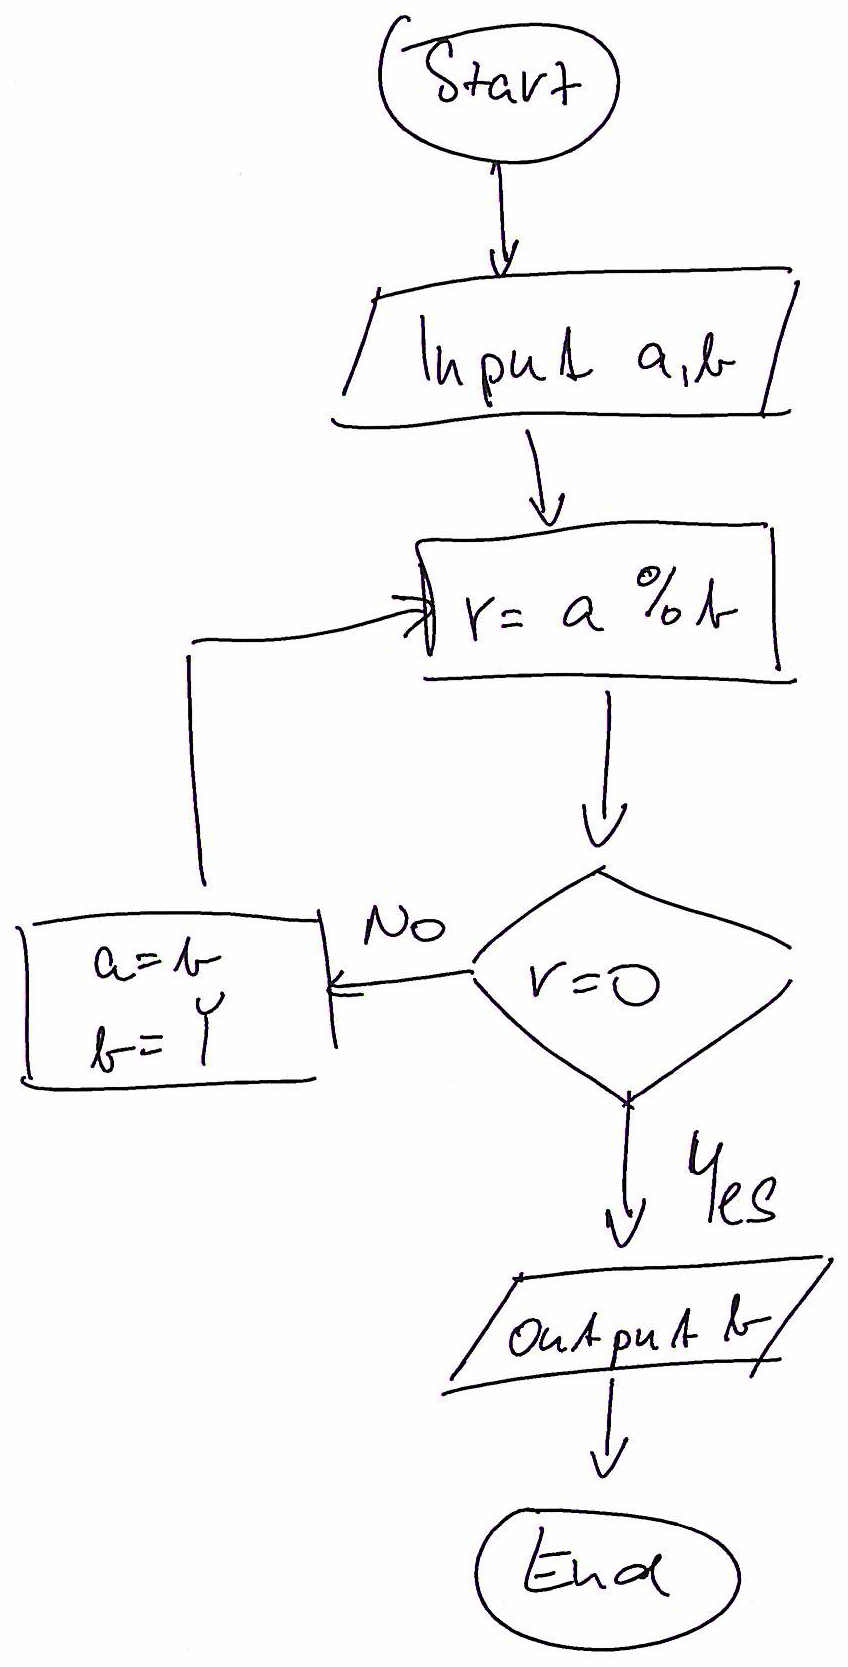 Start
Input a,b
r= a % b
No
r=0
a=b
b=r
Yes
Output b
End